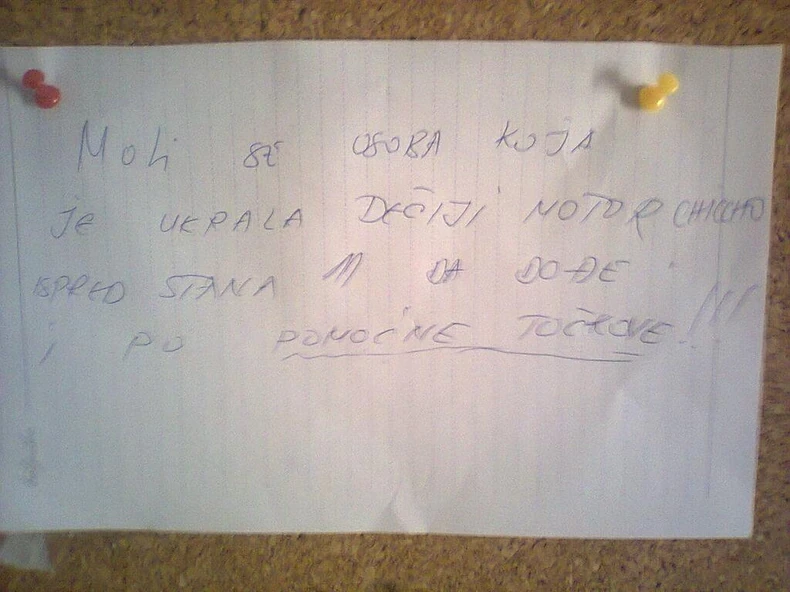 Moli SE OSOBA KOJA
JE UKRALA DEČIJI MOTOR CHICCHO
ISPRED STANA 11 DA DOĐE
i PO POMOĆNE TOČKOVE!!!